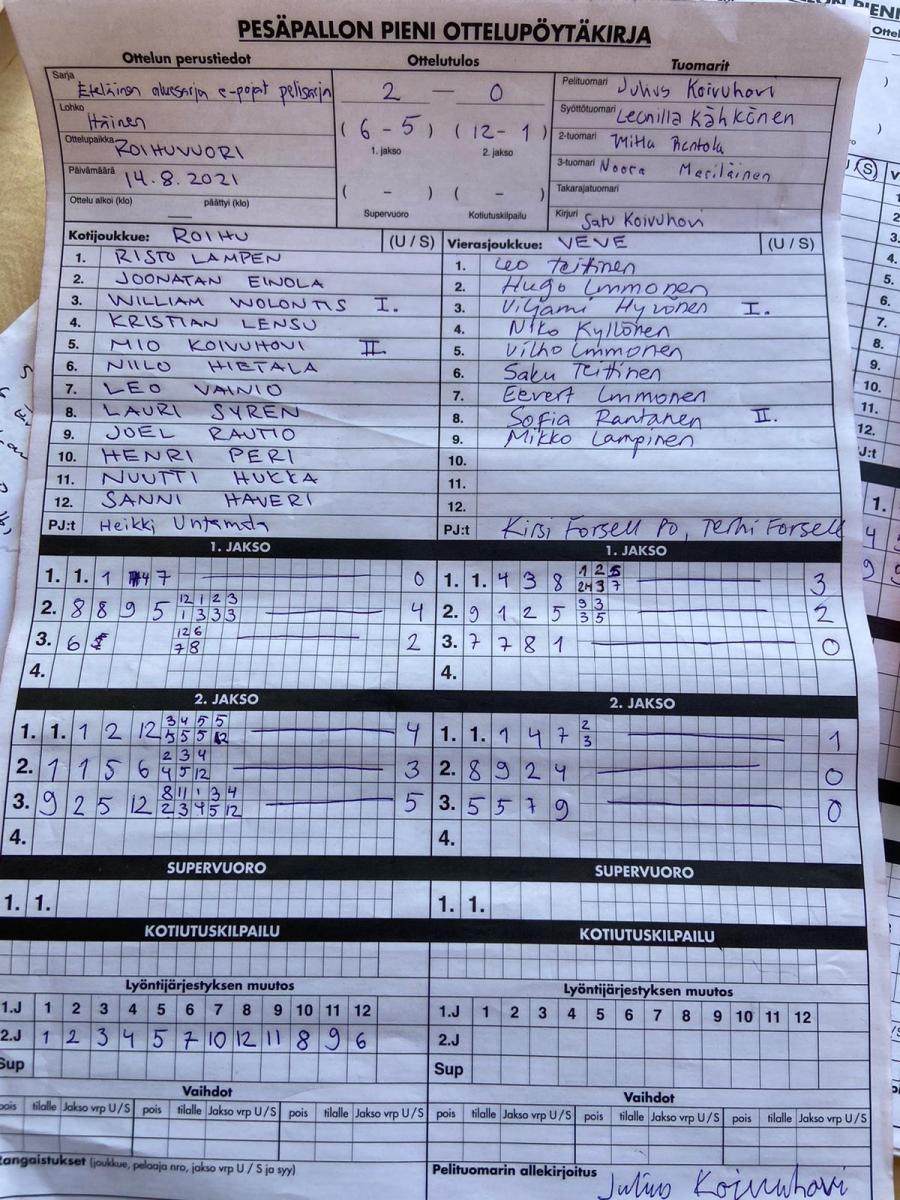 PESÄPALLON PIENI OTTELUPÖYTÄKIRJA
Ottelun perustiedot
Sarja Eteläinen aluesarja e-pojat pelisarja
Lohko Itäinen
Ottelupaikka ROIHUVUORI
Päivämäärä 14.8.2021
Ottelu alkoi (klo) päättyi (klo)
Ottelutulos
2 — 0
( 6 - 5 ) ( 12 - 1 )
1. jakso 2. jakso
( - ) ( - )
Supervuoro Kotiutuskilpailu
Tuomarit
Pelituomari Julius Koivuhovi
Syöttötuomari Leonilla Kähkönen
2-tuomari Miska Rentola
3-tuomari Noora Meriläinen
Takarajatuomari
Kirjuri Satu Koivuhovi
Kotijoukkue: ROIHU (U / S)
1. RISTO LAMPEN
2. JOONATAN EINOLA
3. WILLIAM WOLONTIS I.
4. KRISTIAN LENSU
5. MIO KOIVUHOVI II.
6. NIILO HIETALA
7. LEO VAINIO
8. LAURI SYREN
9. JOEL RAUTIO
10. HENRI PERI
11. NUUTTI HUKKA
12. SANNI HAVERI
PJ:t Heikki Untamala
Vierasjoukkue: VEVE (U / S)
1. Leo Teittinen
2. Hugo Immonen
3. Viljami Hyvönen I.
4. Niko Kyllönen
5. Vilho Immonen
6. Saku Teittinen
7. Eevert Immonen
8. Sofia Rantanen II.
9. Mikko Lampinen
10.
11.
12.
PJ:t Kirsi Forsell PO, Terhi Forsell
1. JAKSO
1. 1. 1 4 7 0
2. 8 8 9 5 12 1 2 3 4
1 3 3 3
3. 6 12 6 2
7 8
4.
1. JAKSO
1. 1. 4 3 8 1 2 5 3
3 7
2. 9 1 2 5 9 3 2
3 5
3. 7 7 8 1 0
4.
2. JAKSO
1. 1. 1 2 12 3 4 5 5 4
5 5 5 12
2. 1 1 5 6 2 3 4 3
4 5 12
3. 9 2 5 12 8 11 1 3 4 5
2 3 4 5 12
4.
2. JAKSO
1. 1. 1 4 7 2 1
3
2. 8 9 2 4 0
3. 5 5 7 9 0
4.
SUPERVUORO
1. 1.
SUPERVUORO
1. 1.
KOTIUTUSKILPAILU
KOTIUTUSKILPAILU
Lyöntijärjestyksen muutos
1.J 1 2 3 4 5 6 7 8 9 10 11 12
2.J 1 2 3 4 5 7 10 12 11 8 9 6
Sup
Lyöntijärjestyksen muutos
1.J 1 2 3 4 5 6 7 8 9 10 11 12
2.J
Sup
Vaihdot
pois tilalle Jakso vrp U/S pois tilalle Jakso vrp U/S pois tilalle Jakso vrp U/S
Vaihdot
pois tilalle Jakso vrp U/S pois tilalle Jakso vrp U/S pois tilalle Jakso vrp U/S
Rangaistukset (joukkue, pelaaja nro, jakso vrp U / S ja syy)
Pelituomarin allekirjoitus Julius Koivuhovi